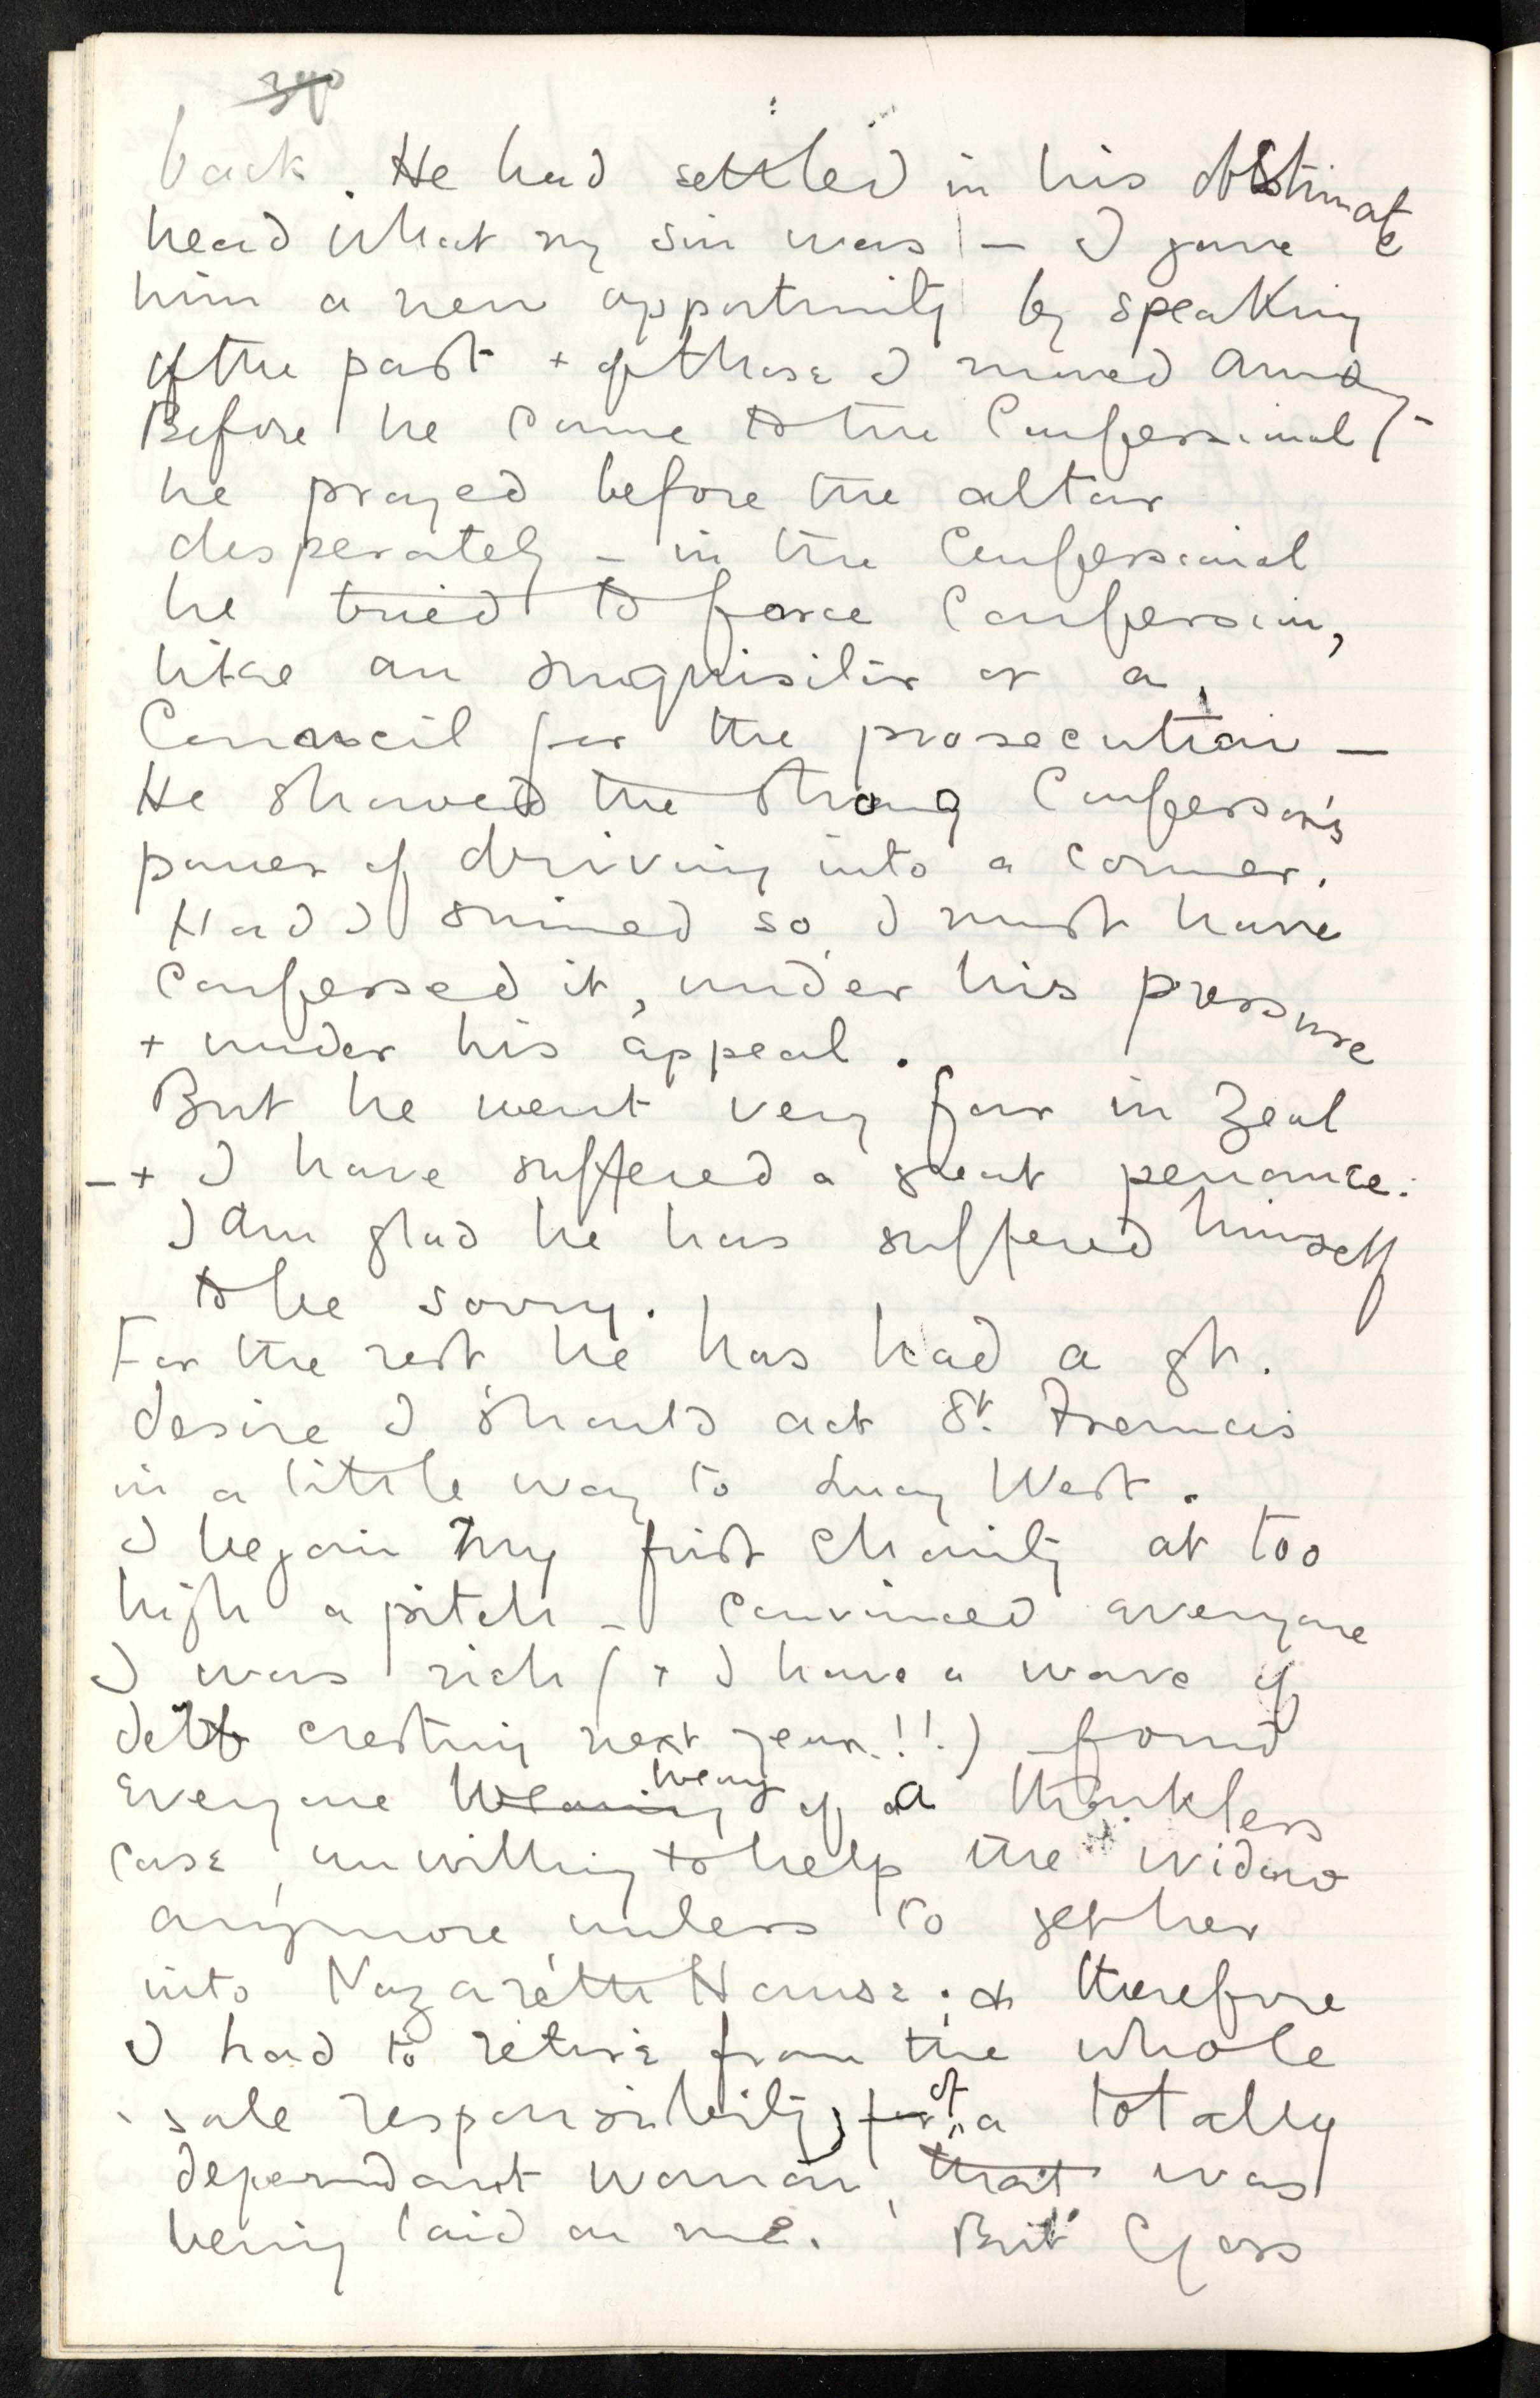 back. He had settled in his obstinate
head what my sin was – I gave
him a new opportunity by speaking
of the past + of those I moved among –
Before he came to the Confessional
he prayed before the altar
desperately – in the Confessional
he tried to force Confession,
like an Inquisitor or a
Council for the prosecution –
He showed the strong Confessor's
power of driving into a corner.
Had I sinned so I must have
confessed it, under his pressure
+ under his appeal.
But he went very far in Zeal
– + I have suffered a great penance.
I am glad he has suffered himself
to be sorry.
For the rest he has had a gt.
desire I should act St. Francis
in a little way to Lucy West.
I began my first charity at too
high a pitch – convinced everyone
I was rich (+ I have a wave of
debt cresting next year!!) found
everyone weary of a thankless
case, unwilling to help the widow
anymore unless to get her
into Nazareth House: & therefore
I had to retire from the whole
sole responsibility, for of a totally
dependant woman, that was
being laid on me. But Cyass